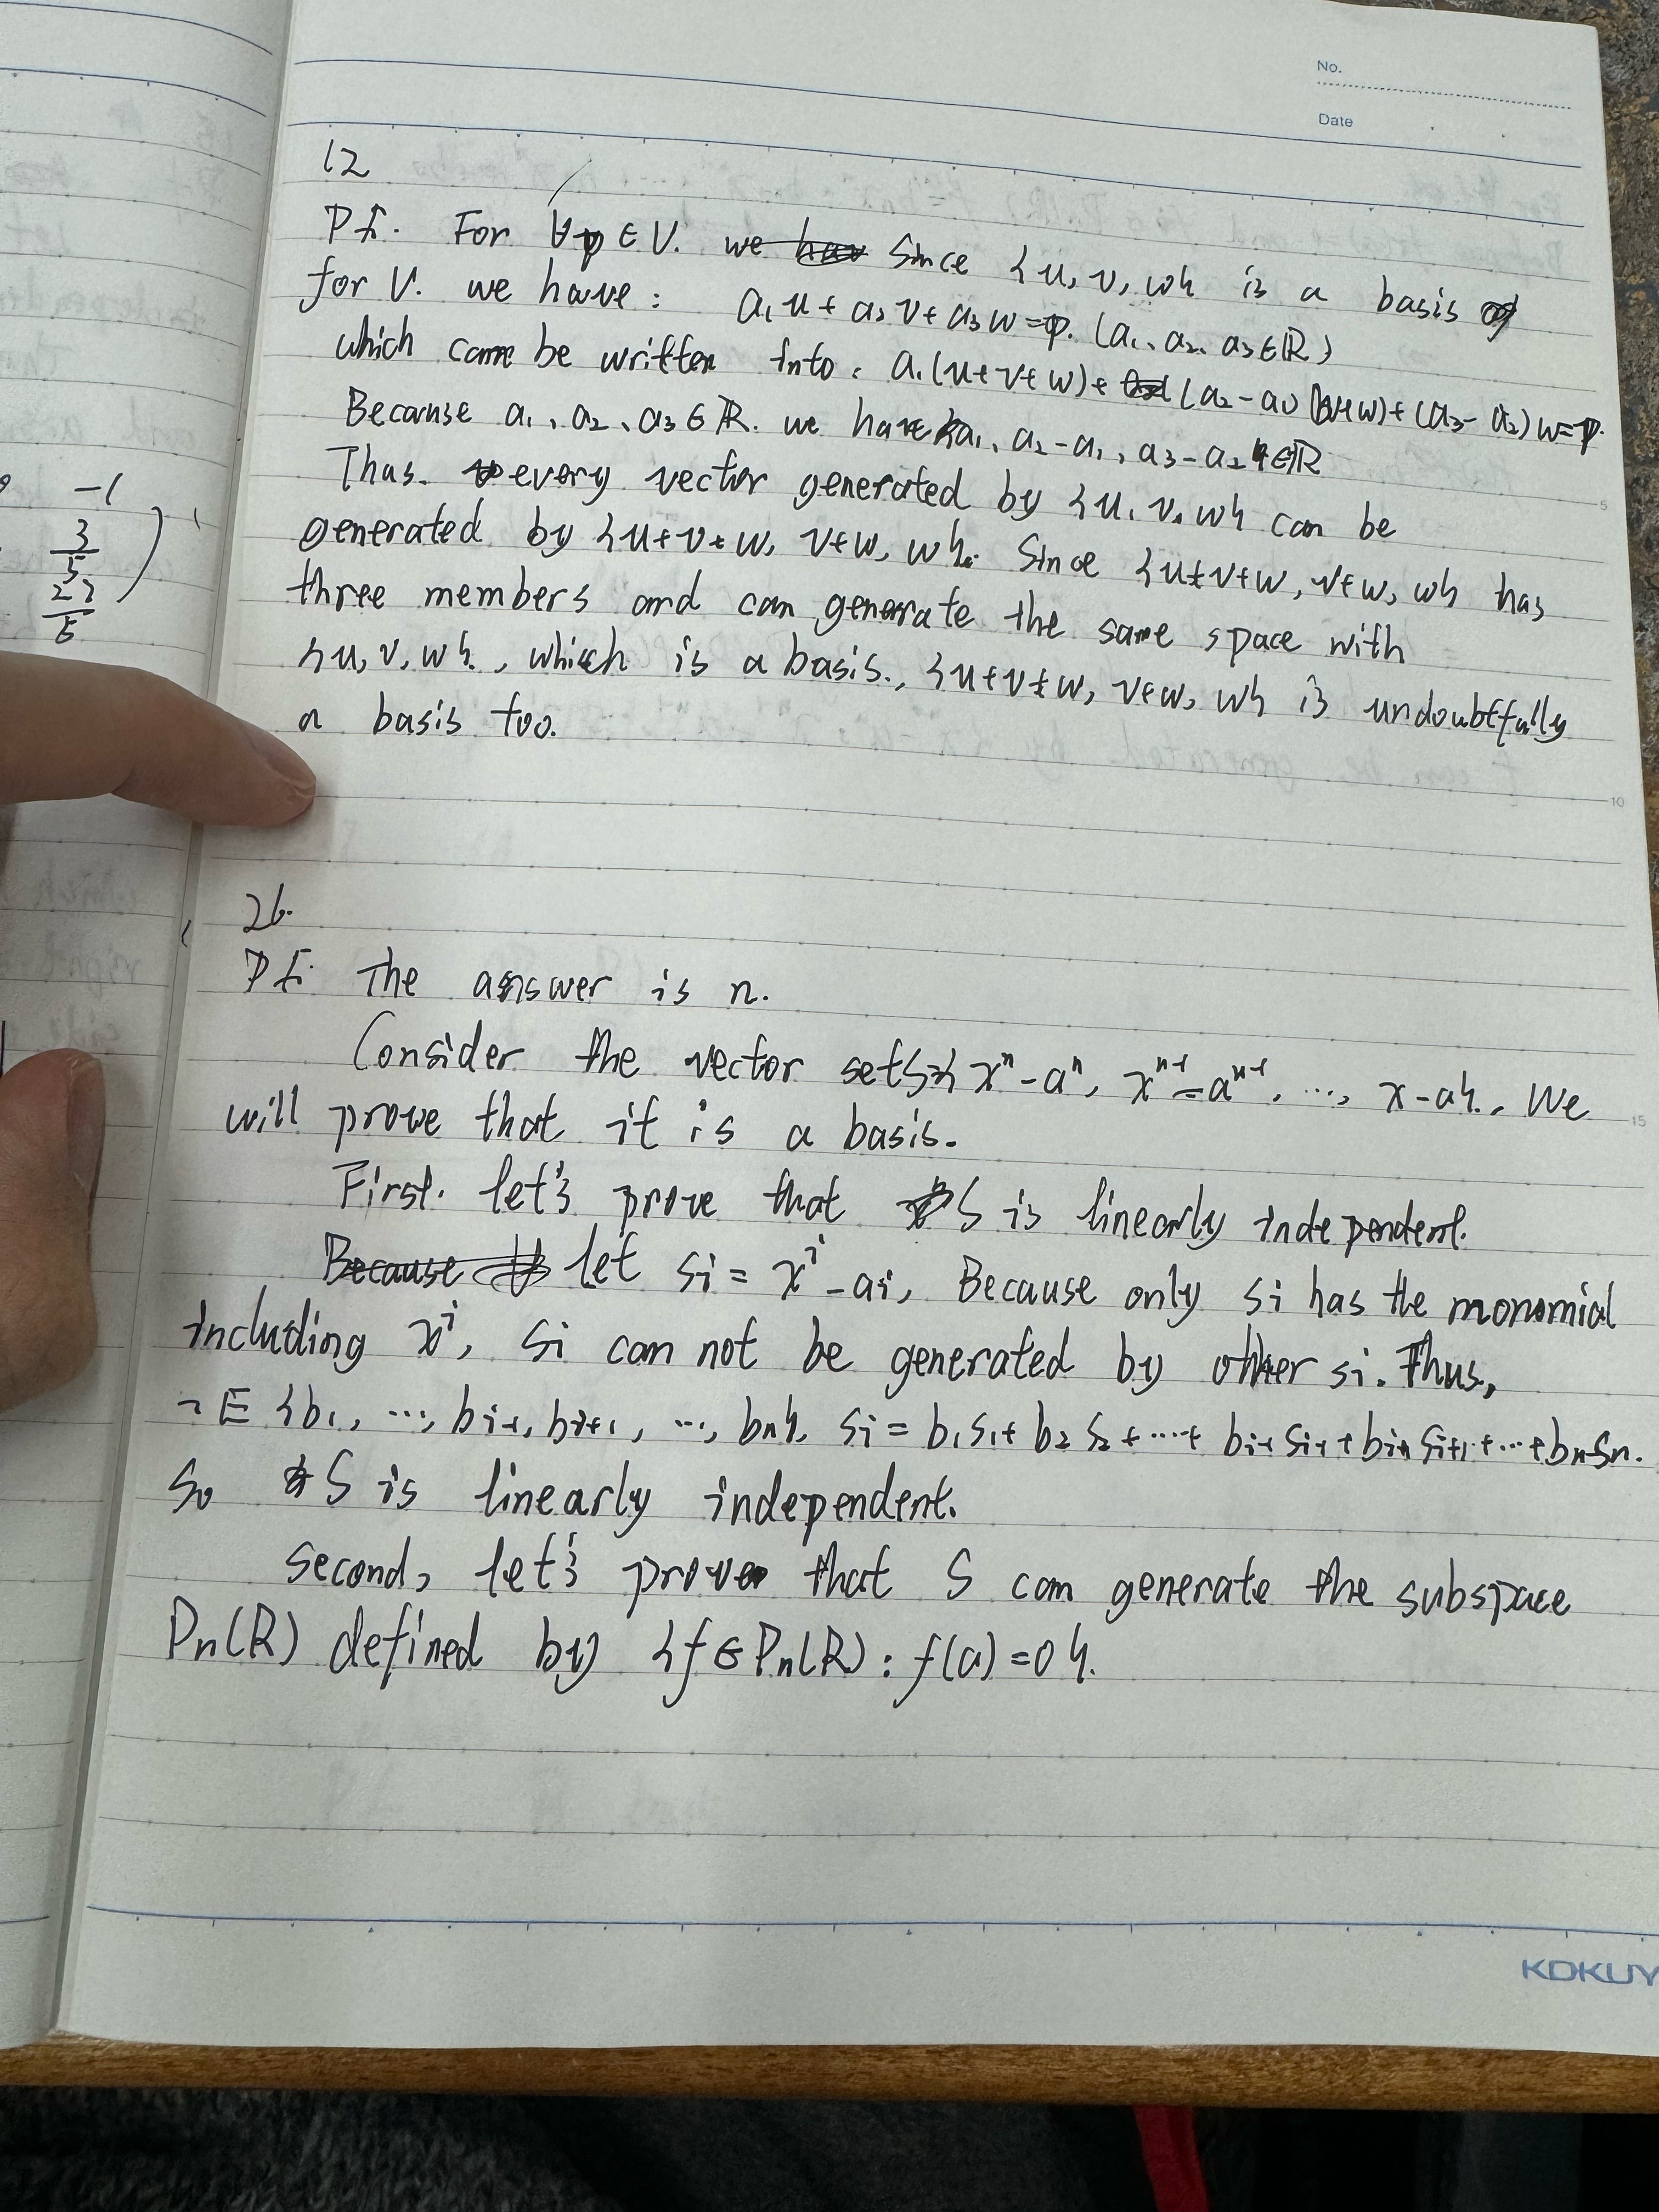 No.
Date
12
Pf. For ∀p ∈ V. we Since {u, v, w} is a basis
for V. we have: a₁u + a₂v + a₃w = p. (a₁、a₂、a₃ ∈ ℝ)
which can be written into: a₁(u+v+w) + (a₂-a₁)(v+w) + (a₃-a₂)w = p.
Because a₁、a₂、a₃ ∈ ℝ. we have a₁、a₂-a₁、a₃-a₂ ∈ ℝ
Thus. every vector generated by {u, v, w} can be
generated by {u+v+w, v+w, w}. Since {u+v+w, v+w, w} has
three members and can generate the same space with
{u, v, w}., which is a basis., {u+v+w, v+w, w} is undoubtfully
a basis too.
-1
3/5
22/5
5
10
26.
Pf: The answer is n.
Consider the vector set S={xⁿ-aⁿ, xⁿ⁻¹-aⁿ⁻¹, ..., x-a}. We
15
will prove that it is a basis.
First. let's prove that S is linearly independent.
Because let si = xⁱ-ai, Because only si has the monomial
including xⁱ, si can not be generated by other si. Thus,
¬∃ {b₁, ..., bi-1, bi+1, ..., bn}, si = b₁s₁+ b₂s₂+...+ bi-1si-1+bi+1si+1+...+bnsn.
So S is linearly independent.
Second, let's prove that S can generate the subspace
Pn(R) defined by {f∈Pn(R): f(a)=0}.
KOKUY